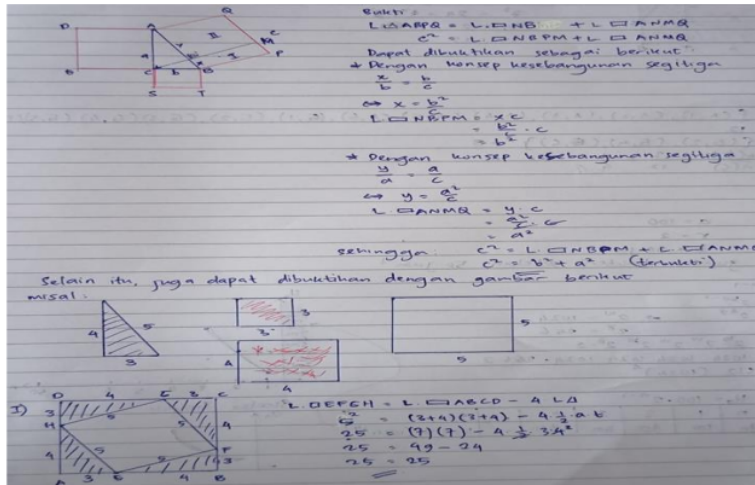 Bukti:
L ΔABPQ = L. □NB + L □ANMQ
c² = L. □NBPM + L □ANMQ
Dapat dibuktikan sebagai berikut
* Dengan konsep kesebangunan segitiga
x/b = b/c
⇔ x = b²/c
L □NBPM = x c
= b²/c . c
= b²
* Dengan konsep kesebangunan segitiga
y/a = a/c
⇔ y = a²/c
L. □ANMQ = y . c
= a²/c . c
= a²
sehingga c² = L. □NBPM + L. □ANM
c² = b² + a² (terbukti)
Selain itu, juga dapat dibuktikan dengan gambar berikut
misal:
4 5 3
3 3
4 4
5 5
I)
D 4 G 3 C
3 5 4
H 5 F
4 5 5 3
3 E 4 B
L. □EFGH = L. □ABCD - 4 LΔ
5² = (3+4)(3+4) - 4 . 1/2 . a t
25 = (7)(7) - 4 . 1/2 3.4²
25 = 49 - 24
25 = 25